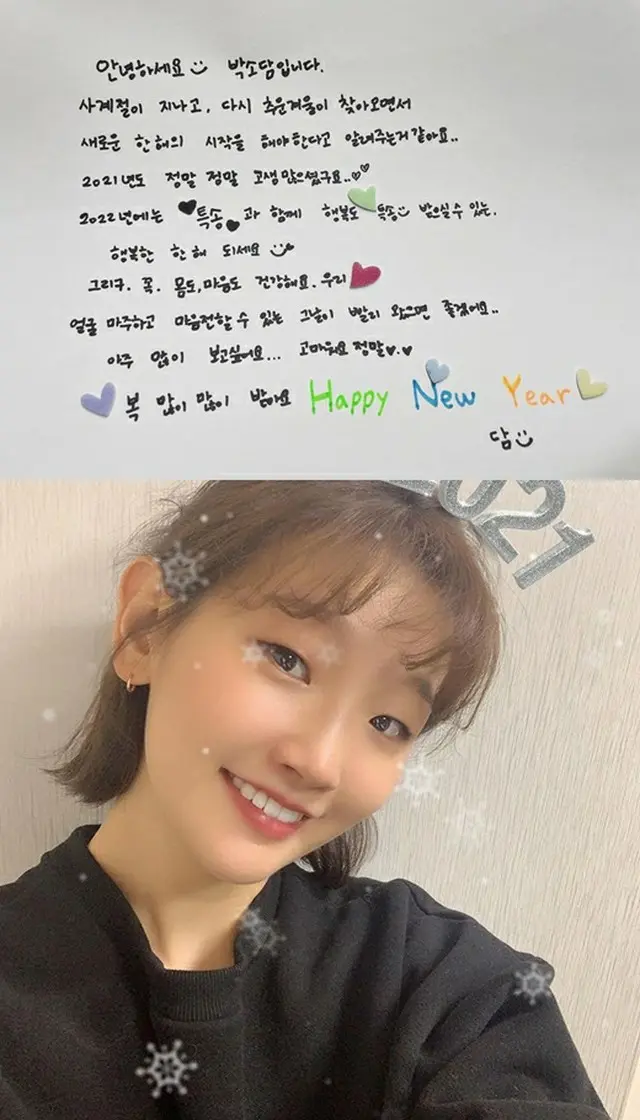 안녕하세요 박소담입니다.
사계절이 지나고, 다시 추운겨울이 찾아오면서
새로운 한해의 시작을 해야한다고 알려주는거같아요..
2021년도 정말 정말 고생 많으셨구요..♡♡
2022년에는 ♥특송♥과 함께 행복도 특송 받으실 수 있는.
행복한 한 해 되세요
그리구. 꼭. 몸도,마음도 건강해요. 우리
얼굴 마주하고 마음전할 수 있는 그날이 빨리 왔으면 좋겠어요..
아주 많이 보고싶어요... 고마워요 정말♥.♥
복 많이 많이 받아요 Happy New Year
담
2021